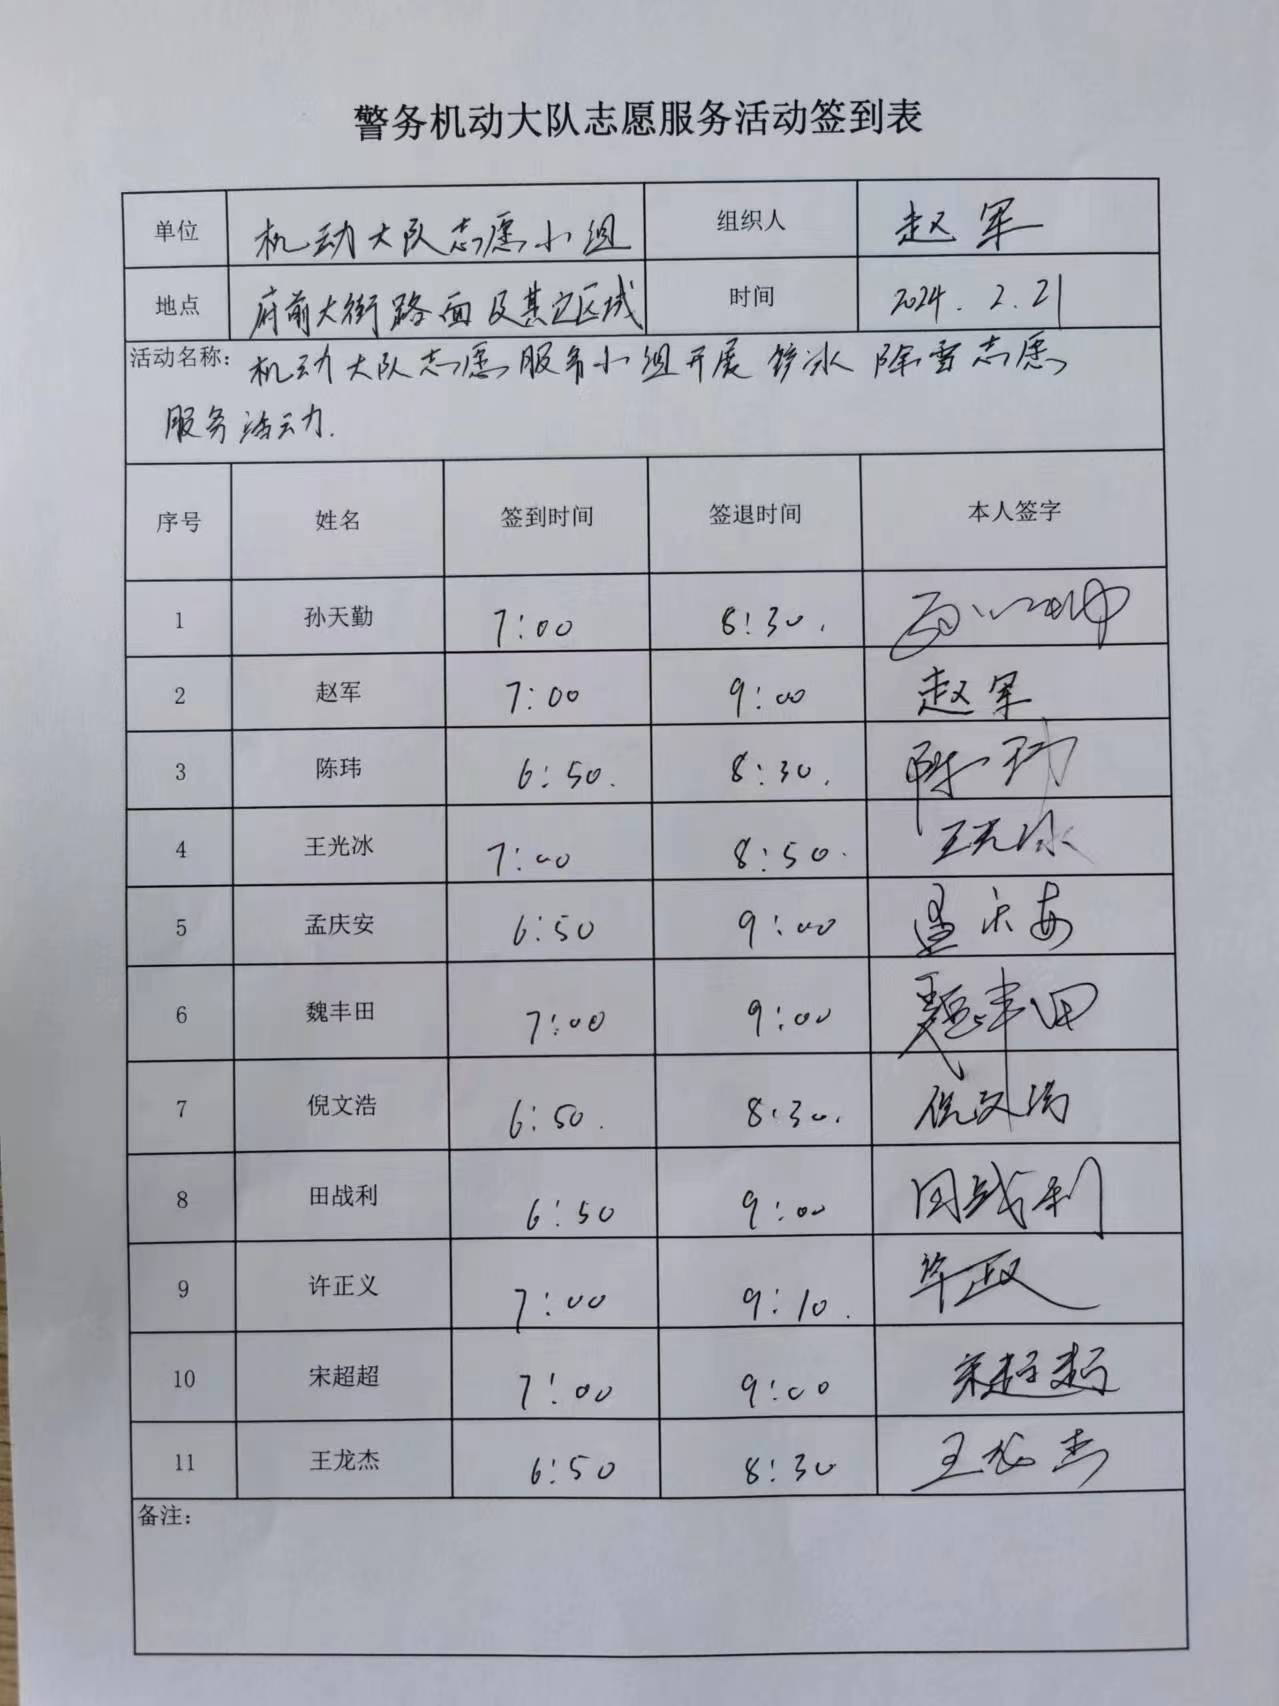 警务机动大队志愿服务活动签到表
单位 机动大队志愿小组 组织人 赵军
地点 府前大街路面及其它区域 时间 2024.2.21
活动名称：机动大队志愿服务小组开展铲冰除雪志愿
服务活动.
序号 姓名 签到时间 签退时间 本人签字
1 孙天勤 7:00 8:30.
2 赵军 7:00 9:00 赵军
3 陈玮 6:50. 8:30. 陈玮
4 王光冰 7:00 8:50. 王光冰
5 孟庆安 6:50 9:00 孟庆安
6 魏丰田 7:00 9:00 魏丰田
7 倪文浩 6:50. 8:30. 倪文浩
8 田战利 6:50 9:00 田战利
9 许正义 7:00 9:10. 许正义
10 宋超超 7:00 9:00 宋超超
11 王龙杰 6:50 8:30 王龙杰
备注：